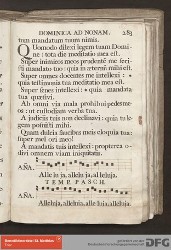 DOMINICA AD NONAM. 283
tom mandatum tuum nimis.
Quomodo dilexi legem tuam Domi-
ne: tota die meditatio mea est.
Super inimicos meos prudentem me feci-
sti mandato tuo: quia in æternū mihi est.
Super omnes docentes me intellexi:
quia testimonia tua meditatio mea est.
Super senes intellexi: quia mandata
tua quæsivi.
Ab omni via mala prohibui pedes me-
os: ut custodiam verba tua.
A judiciis tuis non declinavi: quia tu le-
gem posuisti mihi.
Quam dulcia faucibus meis eloquia tua:
super mel ori meo!
A mandatis tuis intellexi: propterea o-
divi omnem viam iniquitatis.
AÑA.
Alleluja, alleluja, alleluja.
TEMP. PASCH.
AÑA.
Alleluja, alleluja, alleluja, alleluja.
DFG